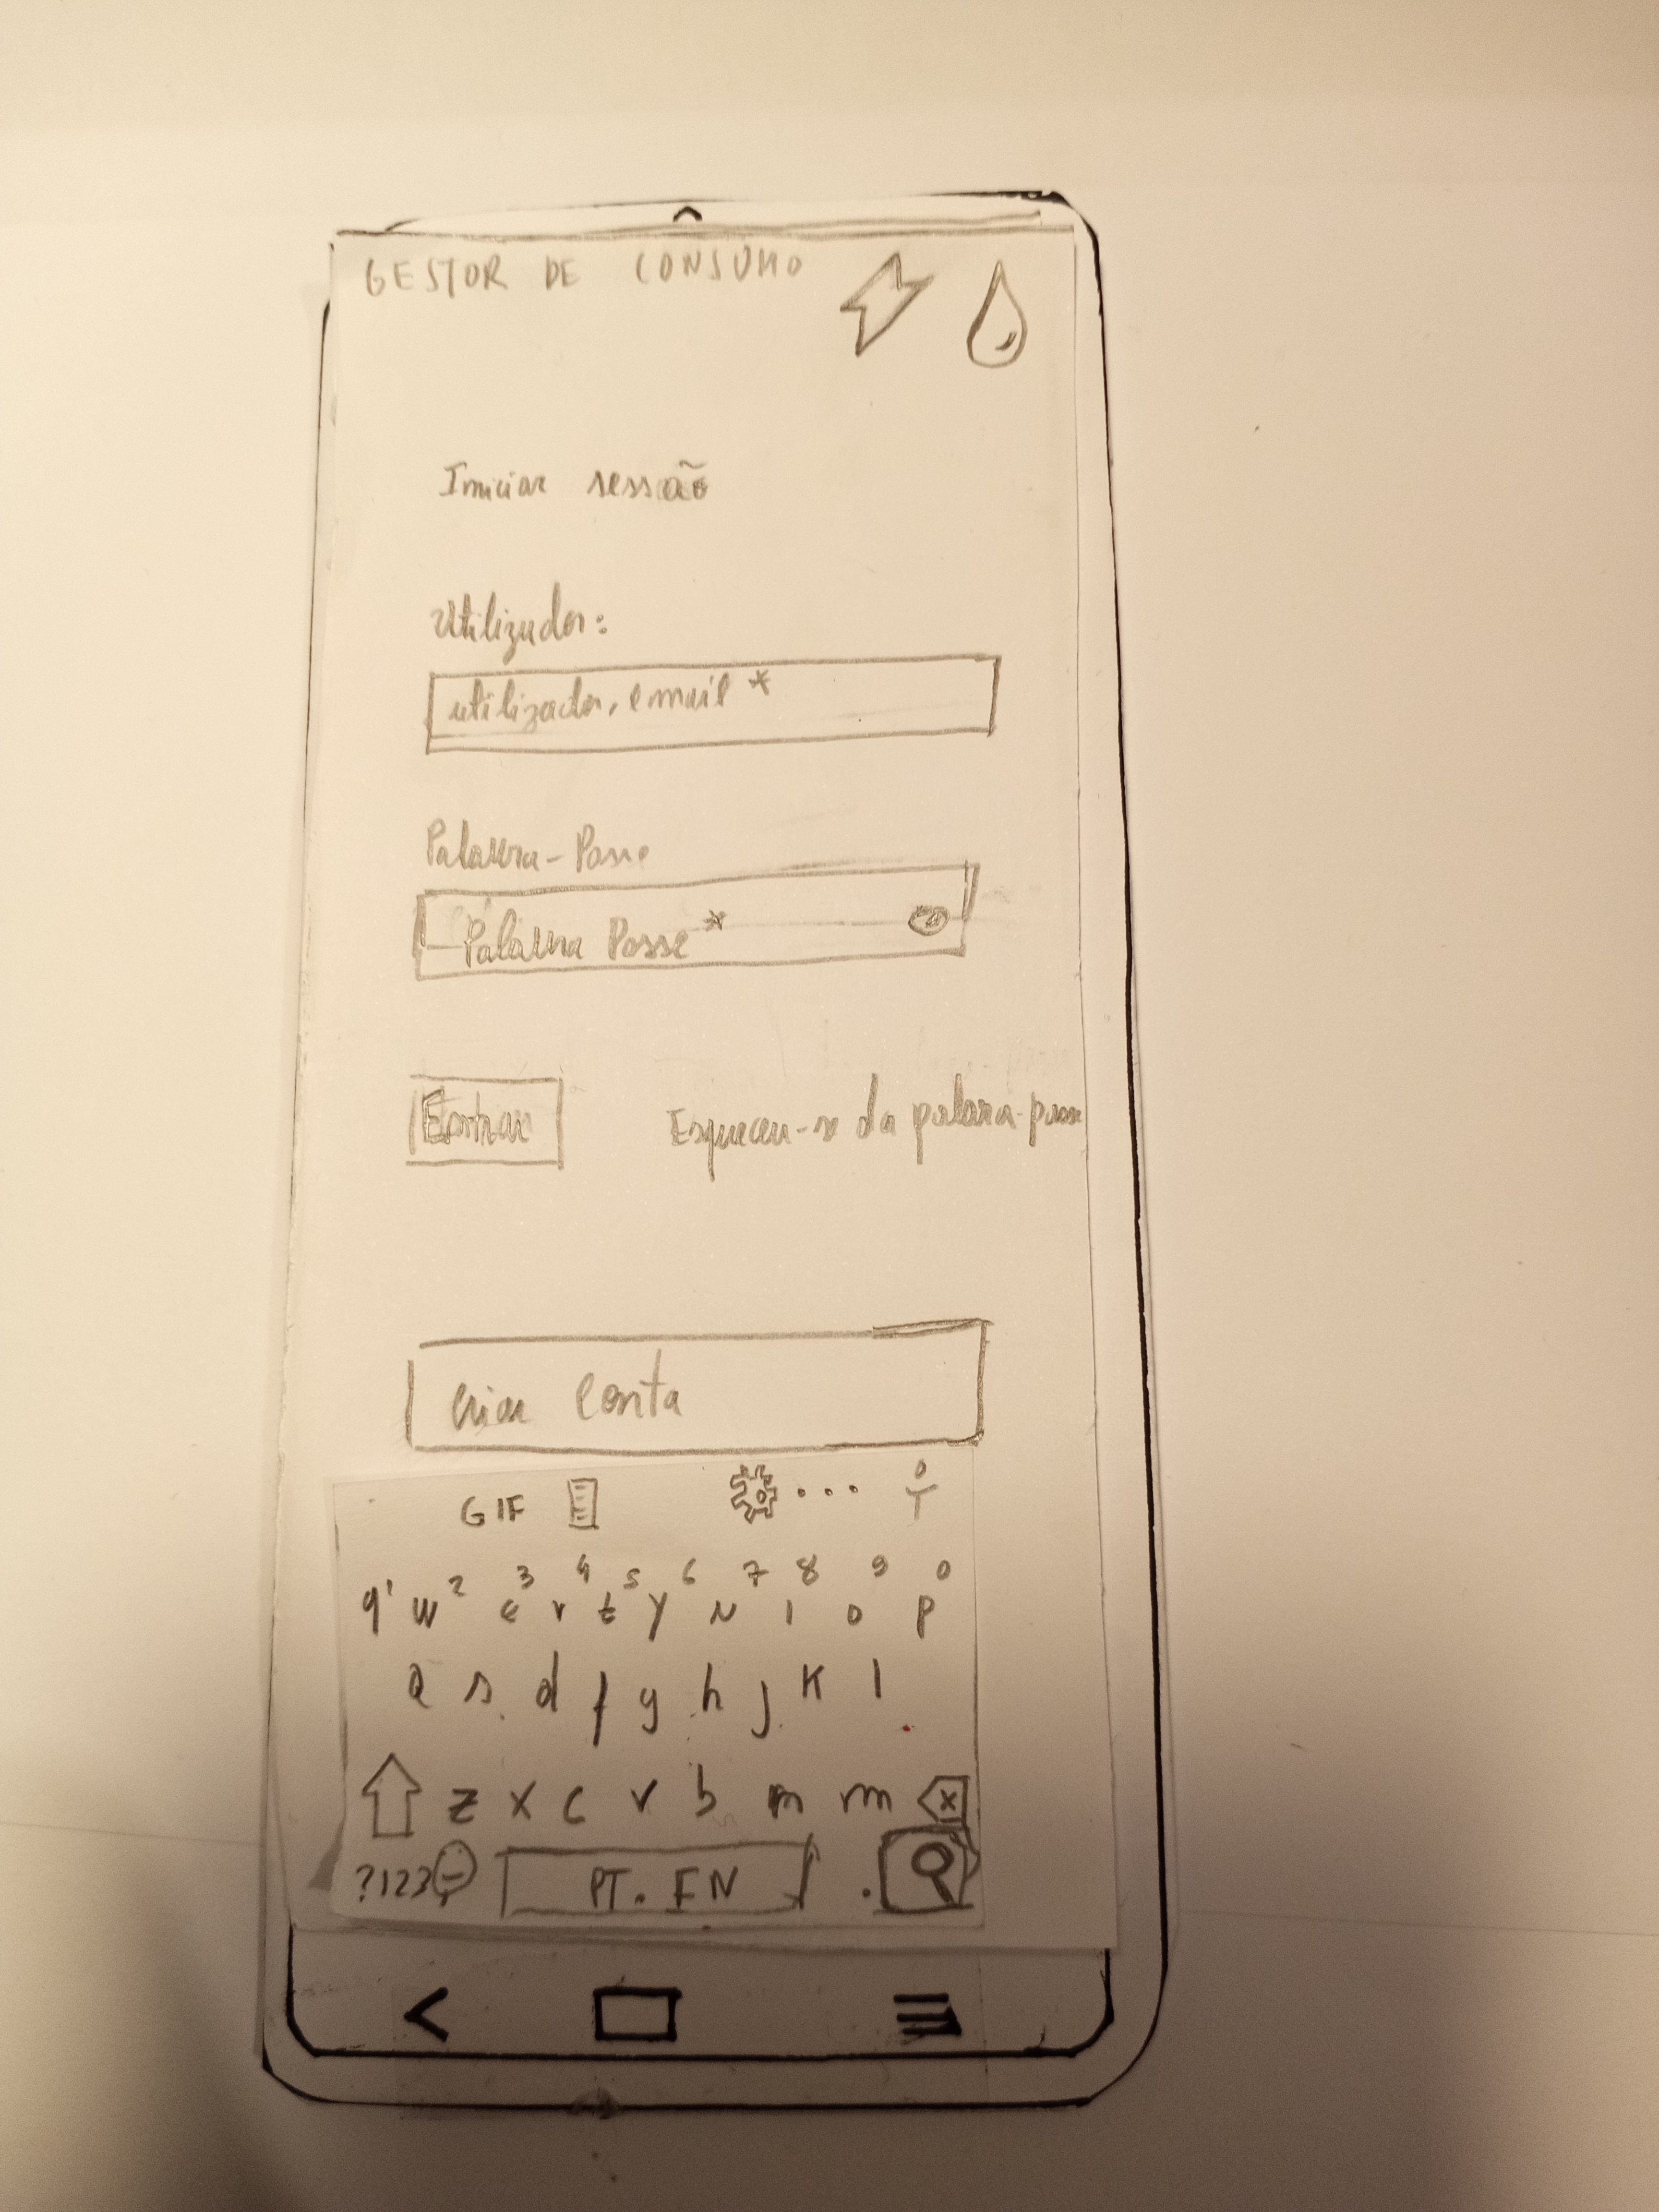 GESTOR DE CONSUMO
Iniciar sessão
Utilizador:
utilizador, email *
Palavra-Passe
Palavra Passe *
Entrar
Esqueceu-se da palavra-passe
criar conta
GIF ...
1 2 3 4 5 6 7 8 9 0
q w e r t y u i o p
a s d f g h j k l
z x c v b n m x
?123 PT. EN .